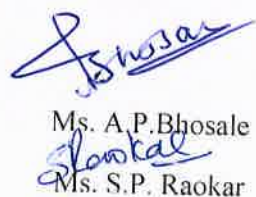 Bhosale
Ms. A.P.Bhosale
SRaokar
Ms. S.P. Raokar